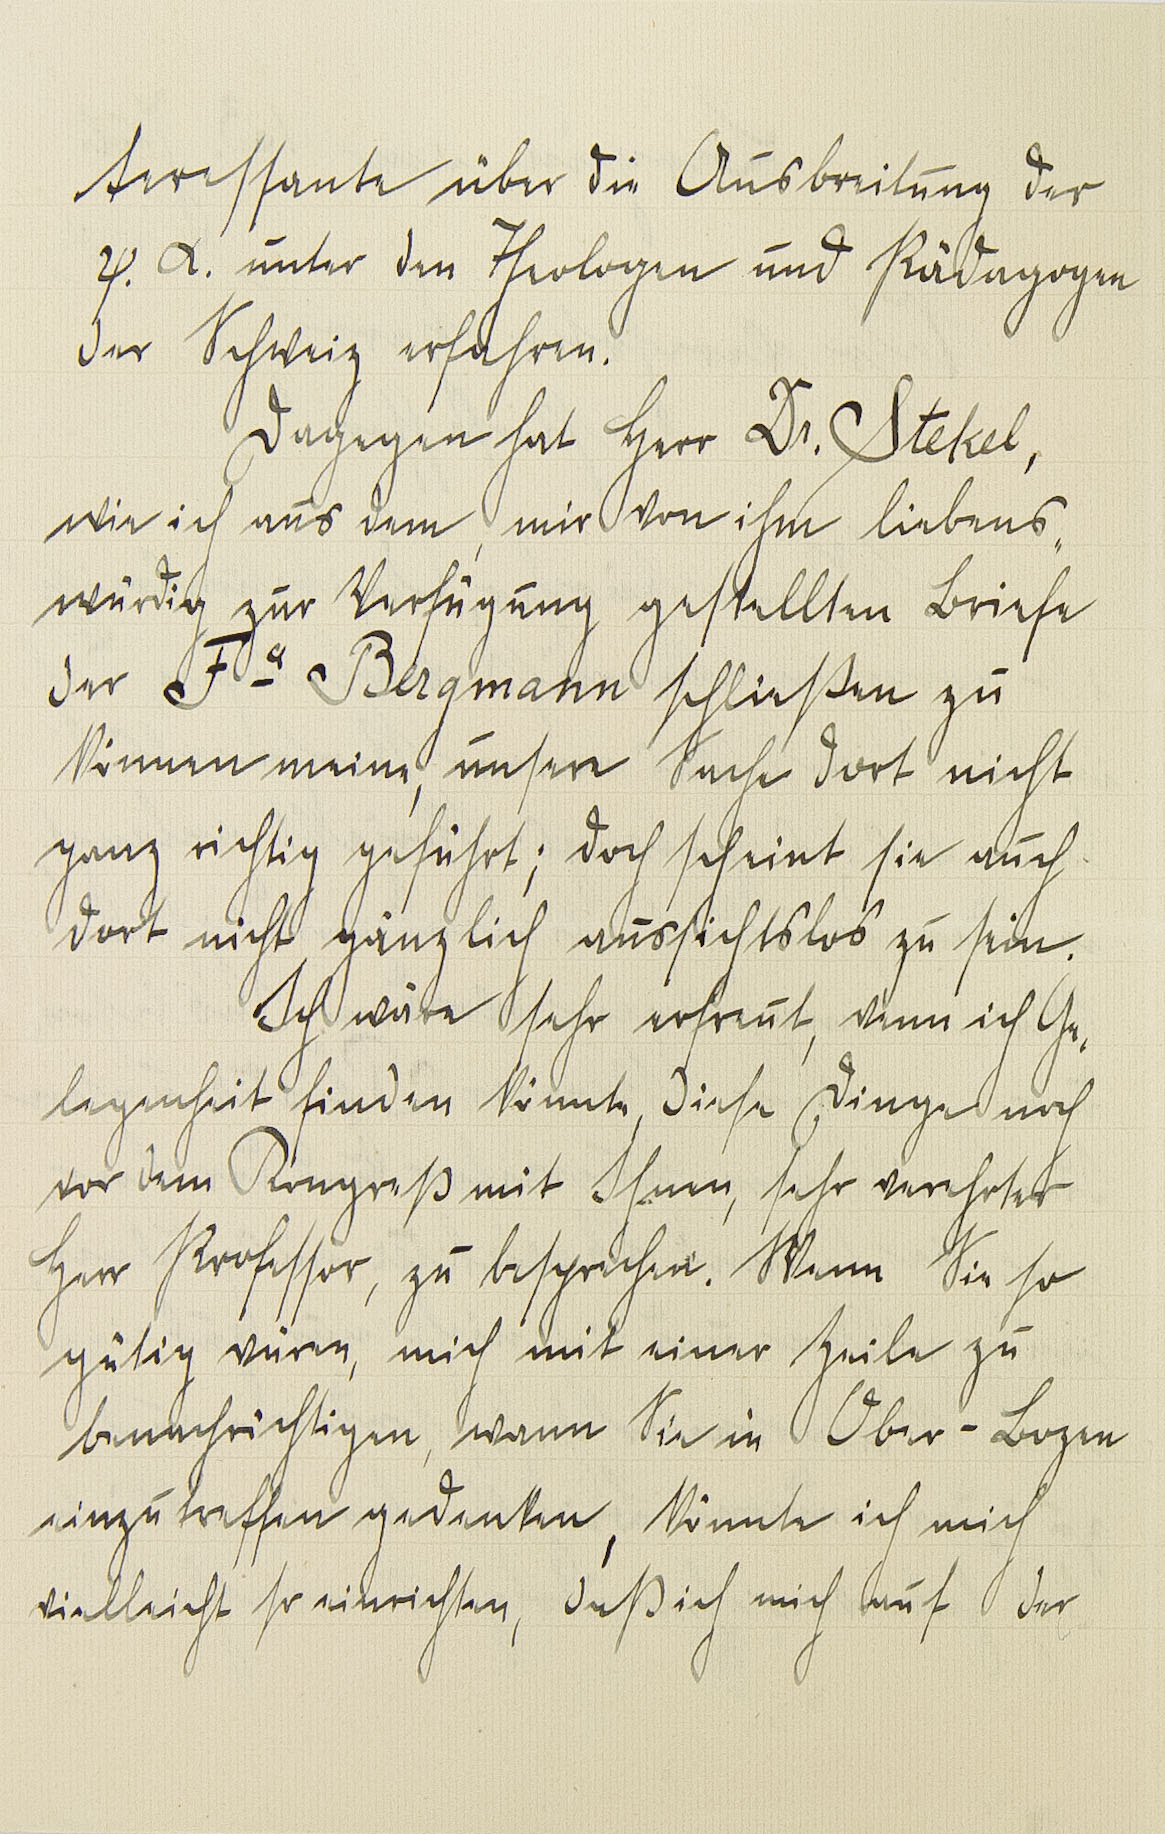 teressante über die Ausbreitung der
ψ. α. unter den Theologen und Pädagogen
der Schweiz erfahren.
Dagegen hat Herr Dr. Stekel,
wie ich aus dem, mir von ihm liebens„
würdig zur Verfügung gestellten Briefe
der Fa Bergmann schließen zu
können meine, unsere Sache dort nicht
ganz richtig geführt; doch scheint sie auch
dort nicht gänzlich aussichtslos zu sein.
Ich wäre sehr erfreut, wenn ich Ge„
legenheit finden könnte, diese Dinge noch
vor dem Kongreß mit Ihnen, sehr verehrter
Herr Professor, zu besprechen. Wenn Sie so
gütig wären, mich mit einer Zeile zu
benachrichtigen, wann Sie in Ober-Bozen
einzutreffen gedenken, könnte ich mich
vielleicht so einrichten, daß ich mich auf der